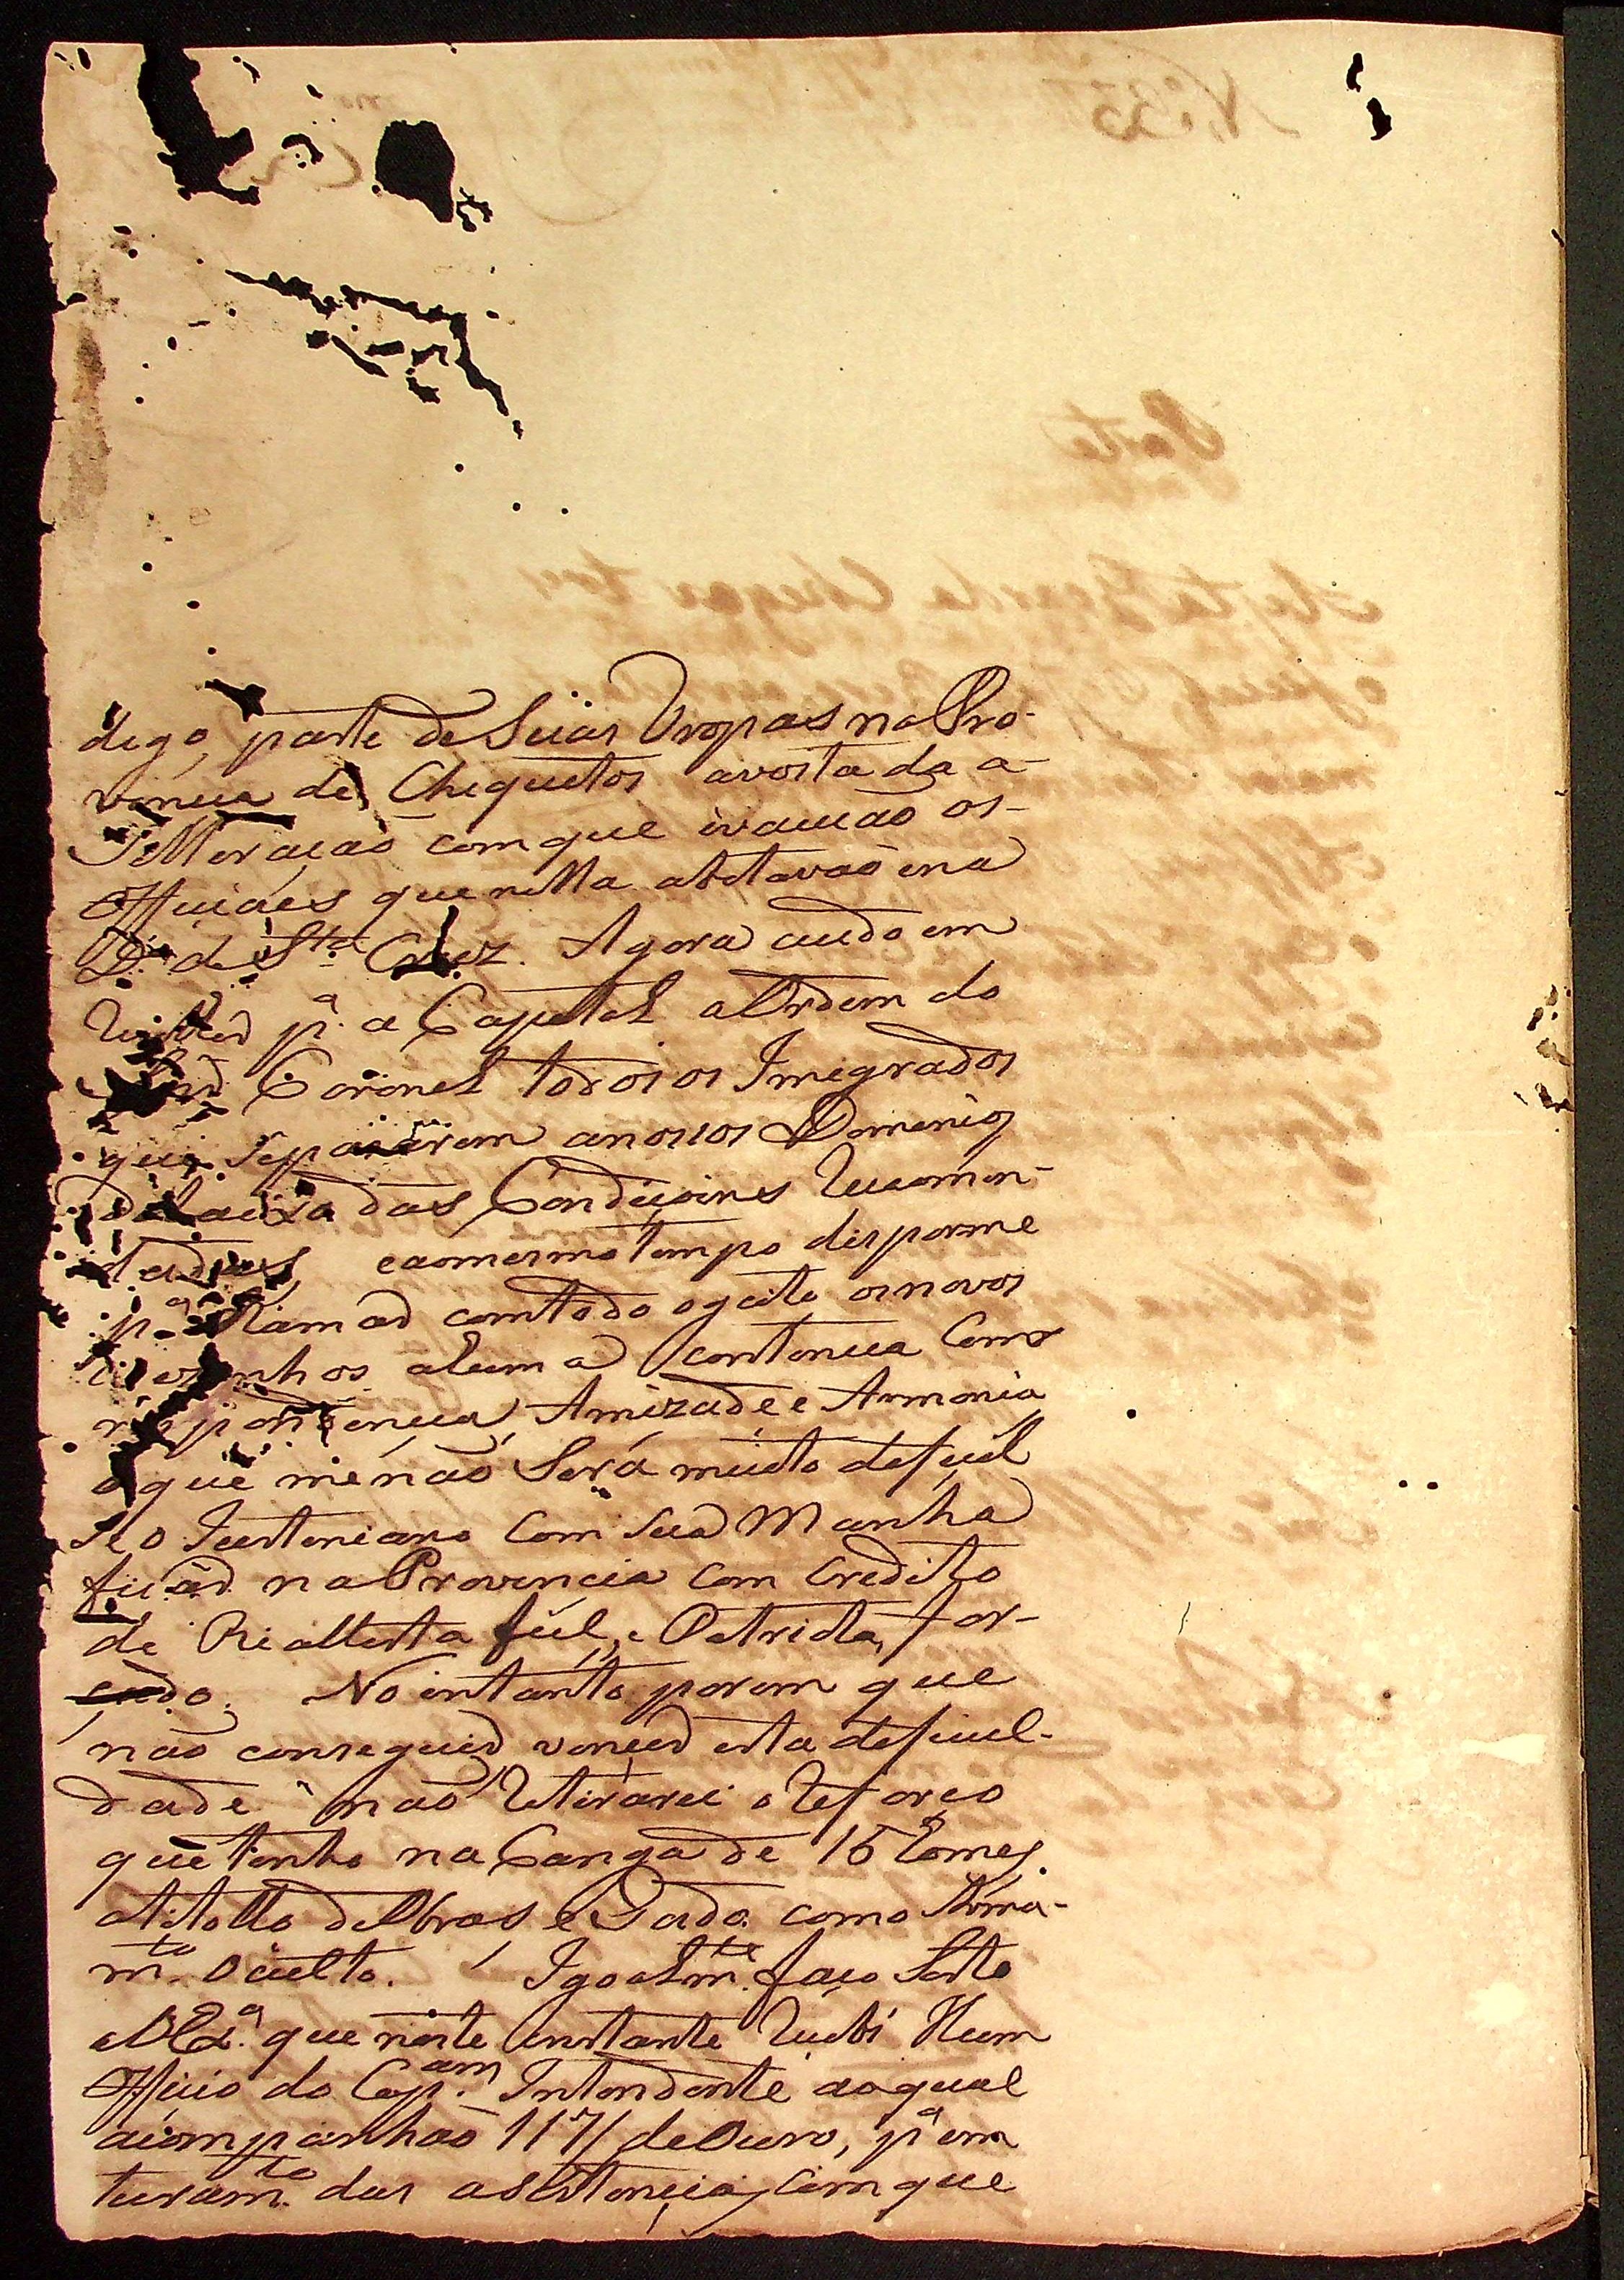 digo, parte de Suas Tropas na Pro-
vincia de Chequitos avosta da a-
lteração com que ivacuão os-
Officiaes que nella abitavaõ e na
de Sta Cruz. Agora cudo em
pa a Capetal a Ordem do
Coronel todos os Imegrados
que Sepaiárem a nossos Domenios
das Condiçoines Recomen-
dadas, e aomesmo tempo disporme
pa com todo ogeito os novos
Vezinhos a huma contenua Corres-
pondencia, Amizade e Armonia
oque me não Será muito deficil
Se o Justeniano Com Sua Manha
ficar na Provencia Com Credito
de Riallista fiel, e Patriota, for-
cado. No intanto porem que
não conseguir vencer esta deficul-
dade não Retirarei o Reforço
que tenho na Canga de 16 Homes
atitollo de Obras e Gado como Arma-
mto Oculto. Igoalmte faço Sciente
a V. Exa que neste instante Recebi Hum
Officio do Capam Intendente aoqual
acompanhão 117/8 de Ouro, pa em
turamto das asestencias com que